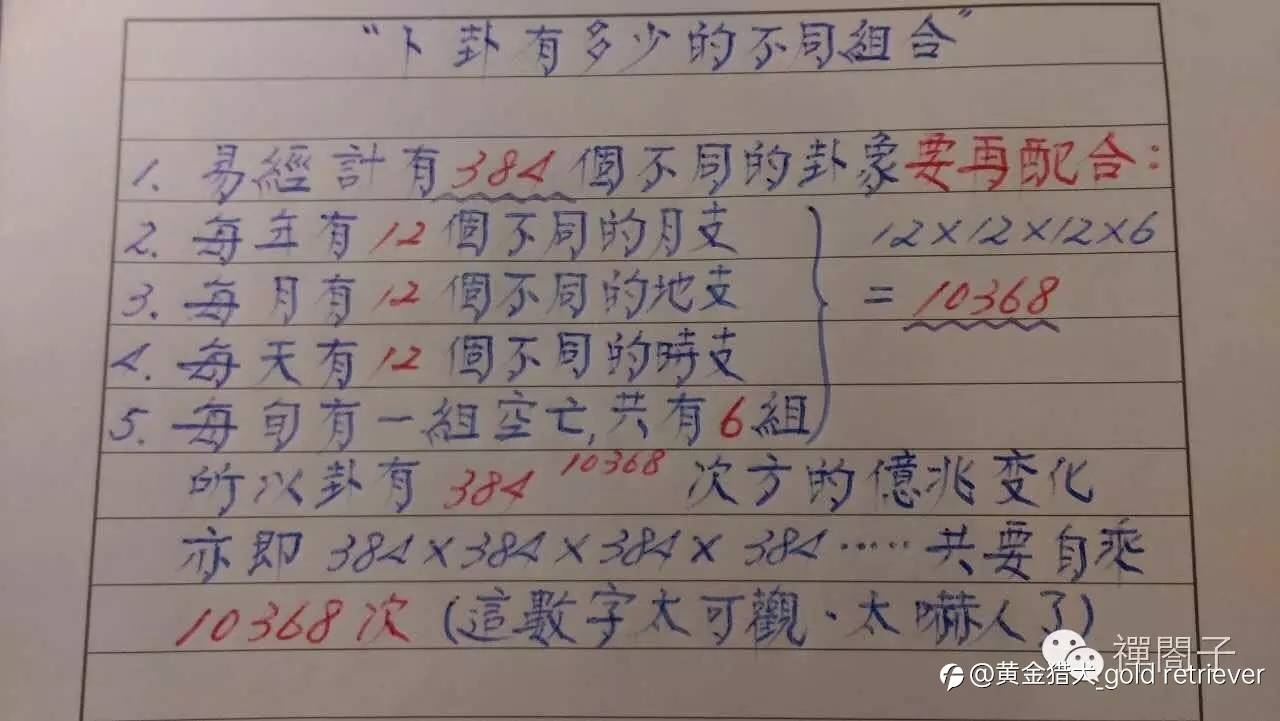 “卜卦有多少的不同組合”
1. 易經計有384個不同的卦象要再配合：
2. 每年有12個不同的月支
12×12×12×6
3. 每月有12個不同的地支
= 10368
4. 每天有12個不同的時支
5. 每旬有一組空亡,共有6組
所以卦有384^10368次方的億兆变化
亦即384×384×384×384……共要自乘
10368次(這數字太可觀、太嚇人了)
禪閣子
@黄金猎犬_gold retriever